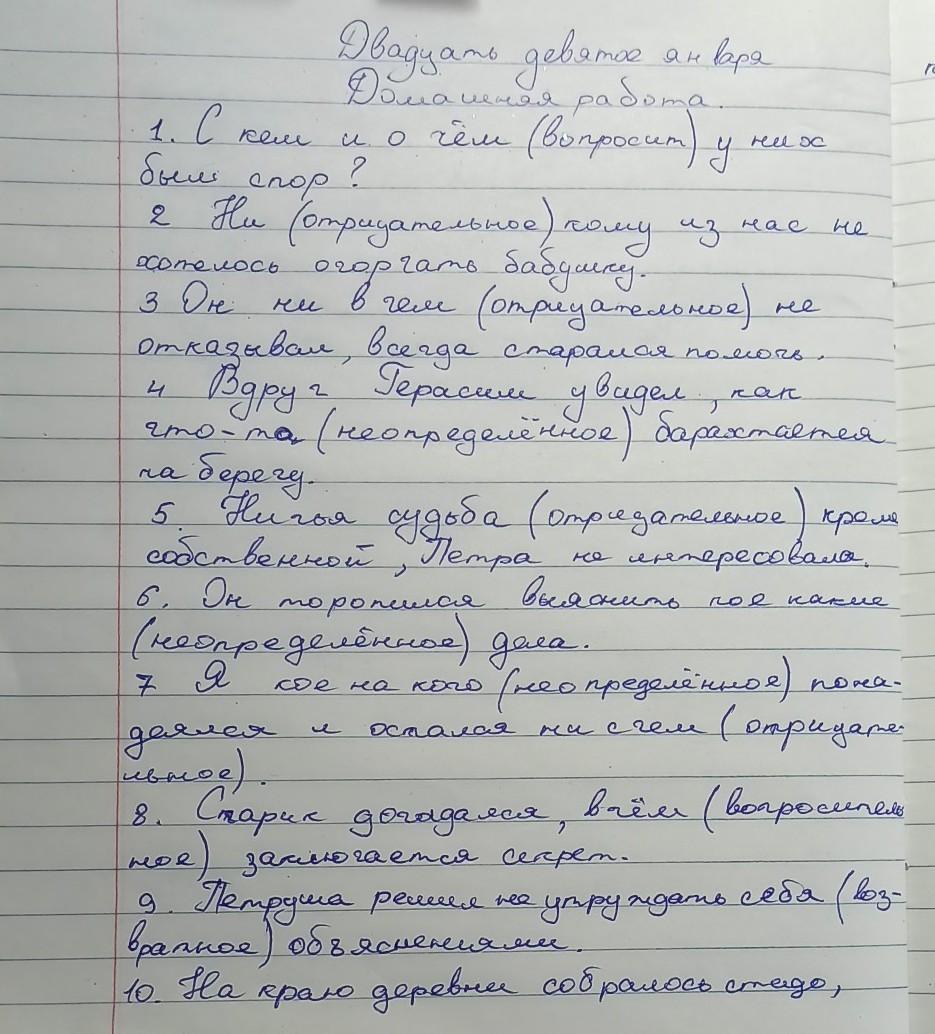 Двадцать девятое января
Домашняя работа.
1. С кем и о чём (вопросит) у них
был спор?
2 Ни (отрицательное) кому из нас не
хотелось огорчать бабушку.
3 Он ни в чем (отрицательное) не
отказывал, всегда старался помочь.
4 Вдруг Герасим увидел, как
что-то (неопределённое) барахтается
на берегу.
5. Ничья судьба (отрицательное) кроме
собственной, Петра не интересовала.
6. Он торопился выяснить кое какие
(неопределённое) дела.
7 Я кое на кого (неопределённое) пона-
деялся и остался ни с чем (отридате-
льное).
8. Старик догадался, в чём (вопроситель
ное) заключается секрет.
9. Петруша решил не утруждать себя (воз-
вратное) объяснениями.
10. На краю деревни собралось стадо,